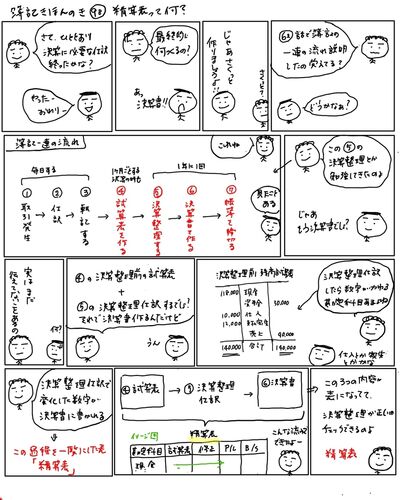 簿記きほんのき98 精算表って何?
さて、ひととおり
決算に必要な仕訳
終ったかな?
やったー
おわりー
最終的に
何つくるの?
あっ
決算書!!
じゃあさくっと
作りましょうよ!!
さくっと?
68話で簿記の
一連の流れ説明
したの覚えてる?
どうかなぁ?
簿記一連の流れ
これね
毎日する
1ヶ月ごとする
決算の時も
1年に1回
①取引発生
②仕訳
③転記する
④試算表を作る
⑤決算整理する
⑥決算書を作る
⑦帳簿を締切る
見たこと
ある
この⑤の
決算整理とか
勉強してきたのよ
じゃあ
もう決算書でしょ?
実はまだ
伝えてないことあるの
何?
④の決算整理前の試算表
+
⑤の決算整理仕訳するでしょ?
それで決算書作るんだけど
うん
決算整理前残高試算表
110,000 現金
資本金 50,000
10,000 仕入
売上 90,000
140,000 合計 140,000
決算整理仕訳
したら数字がかわる
仕入とか変生
とかかな
決算整理仕訳で
変化した数字が
決算書に書かれる
「精算表」
④試算表
⑤決算整理
仕訳
⑥決算書
イメージ図
精算表
勘定科目 試算表 修正 P/L B/S
現金
こんな流れで
できたよー
この3つの内容が
表になってて、
決算整理が正しいか
チェックできるのよ
精算表